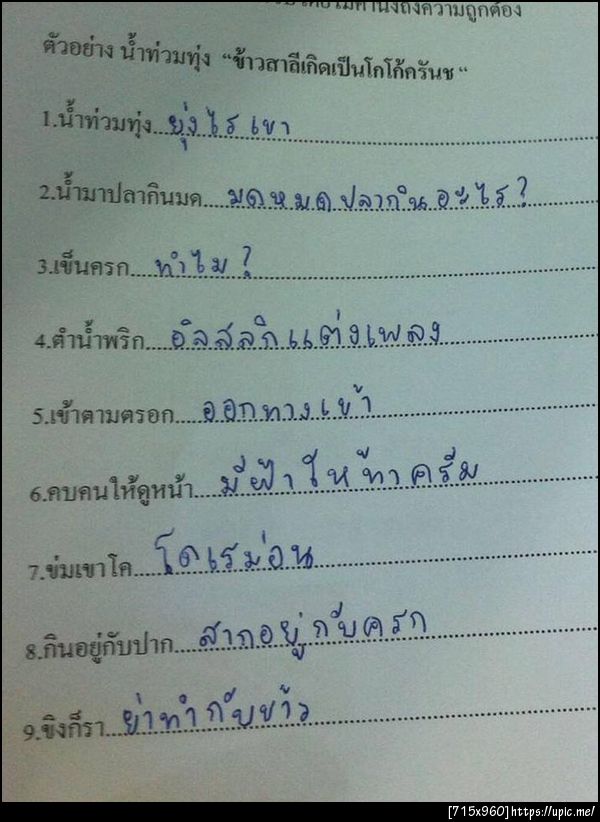 โดยไม่คำนึงถึงความถูกต้อง
ตัวอย่าง น้ำท่วมทุ่ง "ข้าวสาลีเกิดเป็นโกโก้ครันช"
1.น้ำท่วมทุ่ง...ยุ่งไรเขา
2.น้ำมาปลากินมด...มดหมดปลากินอะไร?
3.เข็นครก...ทำไม?
4.ตำน้ำพริก...อัลสลิกแต่งเพลง
5.เข้าตามตรอก...ออกทางเข้า
6.คบคนให้ดูหน้า...มีฝ้าให้ทาครีม
7.ข่มเขาโค...โดเรม่อน
8.กินอยู่กับปาก...สากอยู่กับครก
9.ขิงก็รา...ย่าทำกับข้าว
[715x960]https://upic.me/